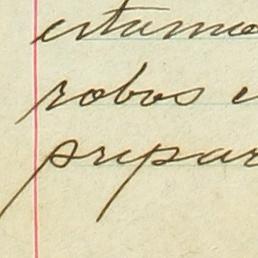 estamo
robos e
prepar